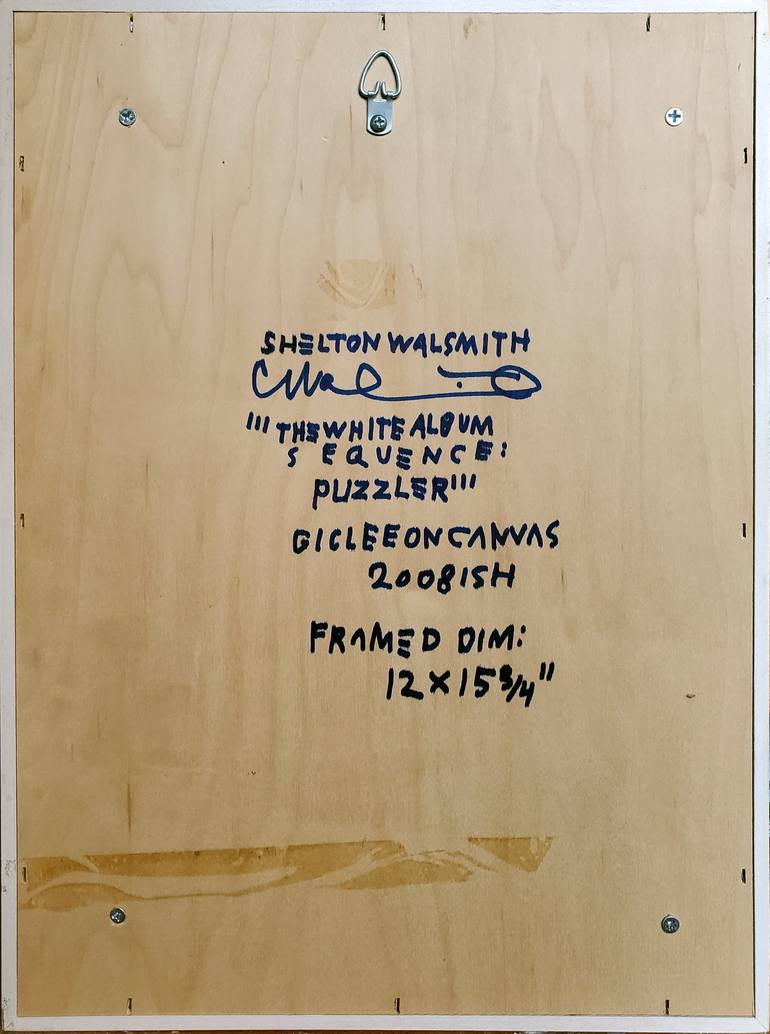 SHELTON WALSMITH
"'THE WHITE ALBUM
SEQUENCE:
PUZZLER'"
GICLEE ON CANVAS
2008ISH
FRAMED DIM:
12 X 15 3/4"